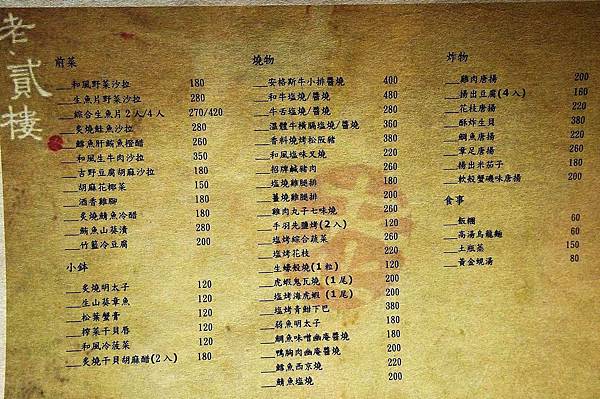 老·貳樓
前菜
___和風野菜沙拉 180
___生魚片野菜沙拉 280
___綜合生魚片2人/4人 270/420
___炙燒鮭魚沙拉 280
___鱈魚肝鮪魚橙醋 260
___和風生牛肉沙拉 350
___古野豆腐胡麻沙拉 180
___胡麻花椰菜 150
___酒香雞腳 180
___炙燒鯖魚冷醋 180
___鮪魚山葵漬 280
___竹籃冷豆腐 200
小鉢
___炙燒明太子 120
___生山葵章魚 120
___松葉蟹膏 120
___榨菜干貝唇 120
___和風冷菠菜 120
___炙燒干貝胡麻醋(2入) 180
燒物
___安格斯牛小排醬燒 400
___和牛塩燒/醬燒 480
___牛舌塩燒/醬燒 280
___溫體牛橫膈塩燒/醬燒 360
___香料燒烤松阪豬 380
___和風塩味叉燒 220
___招牌鹹豬肉 260
___塩燒雞腿排 180
___薑燒雞腿排 200
___雞肉丸子七味燒 260
___手羽先鹽烤(2入) 120
___塩烤綜合蔬菜 260
___塩烤花枝
___生蠔殼燒(1粒) 120
___虎蝦鬼瓦燒(1尾) 200
___塩烤海虎蝦(1尾) 200
___塩烤青魽下巴 380
___明太子 180
___鯛魚味噌幽庵醬燒 200
___鴨胸肉幽庵醬燒 200
___鱈魚西京燒 220
___鯖魚塩燒 200
炸物
___雞肉唐揚 200
___揚出豆腐(4入) 160
___花枝唐揚 200
___酥炸生貝 380
___鯛魚唐揚 200
___章足唐揚 260
___揚出米茄子 180
___軟殼蟹磯味唐揚 200
食事
___飯糰 60
___高湯烏龍麵 60
___土瓶蒸 150
___黃金蜆湯 80